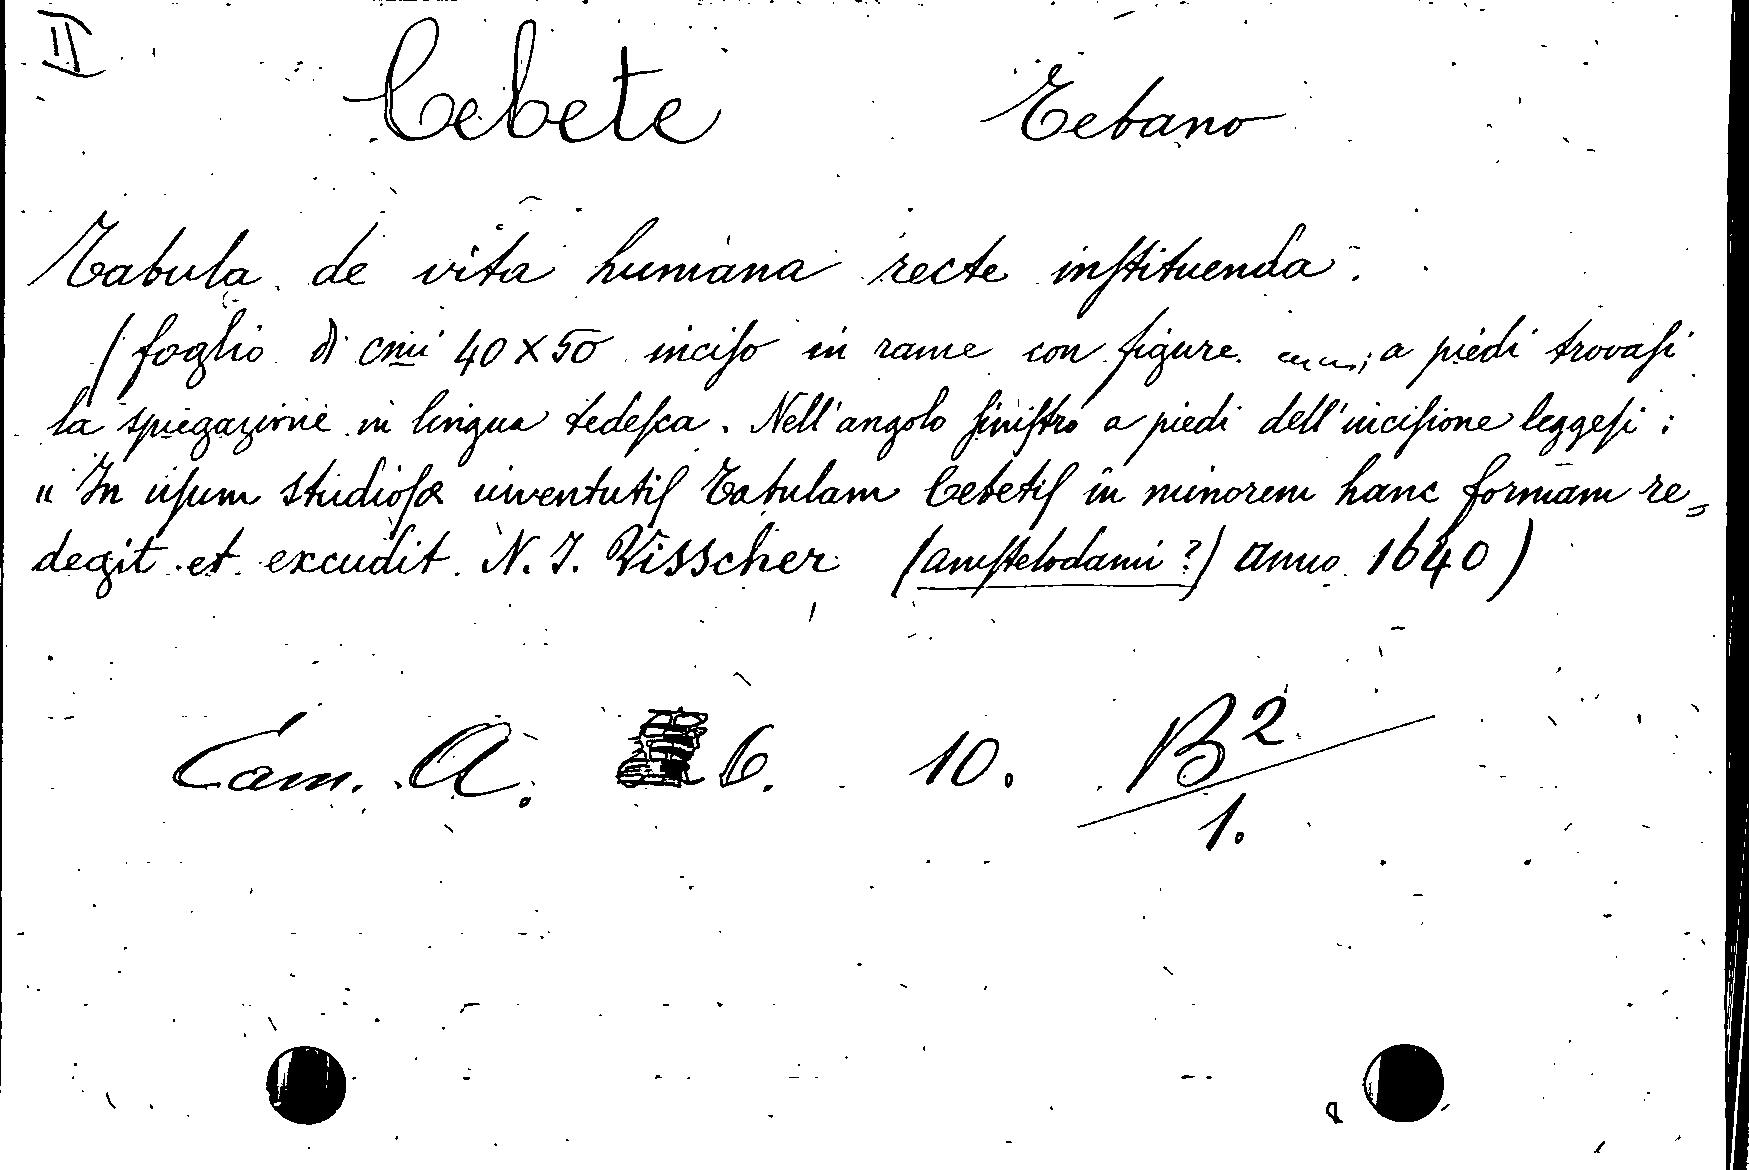 II
Cebete Tebano
Tabula de vita humana recte inſtituenda.
(foglio di cmi 40 x 50 inciſo in rame con figure. ; a piedi trovaſi
la spiegazione in lingua tedeſca. Nell'angolo ſiniſtro a piedi dell'inciſione leggeſi:
"In uſum studioſæ iuventutiſ Tabulam Cebetiſ in minorem hanc formam re„
degit et excudit N. J. Visscher (amſtelodami?) anno 1640)
Cam. A. 6. 10. B2/1.